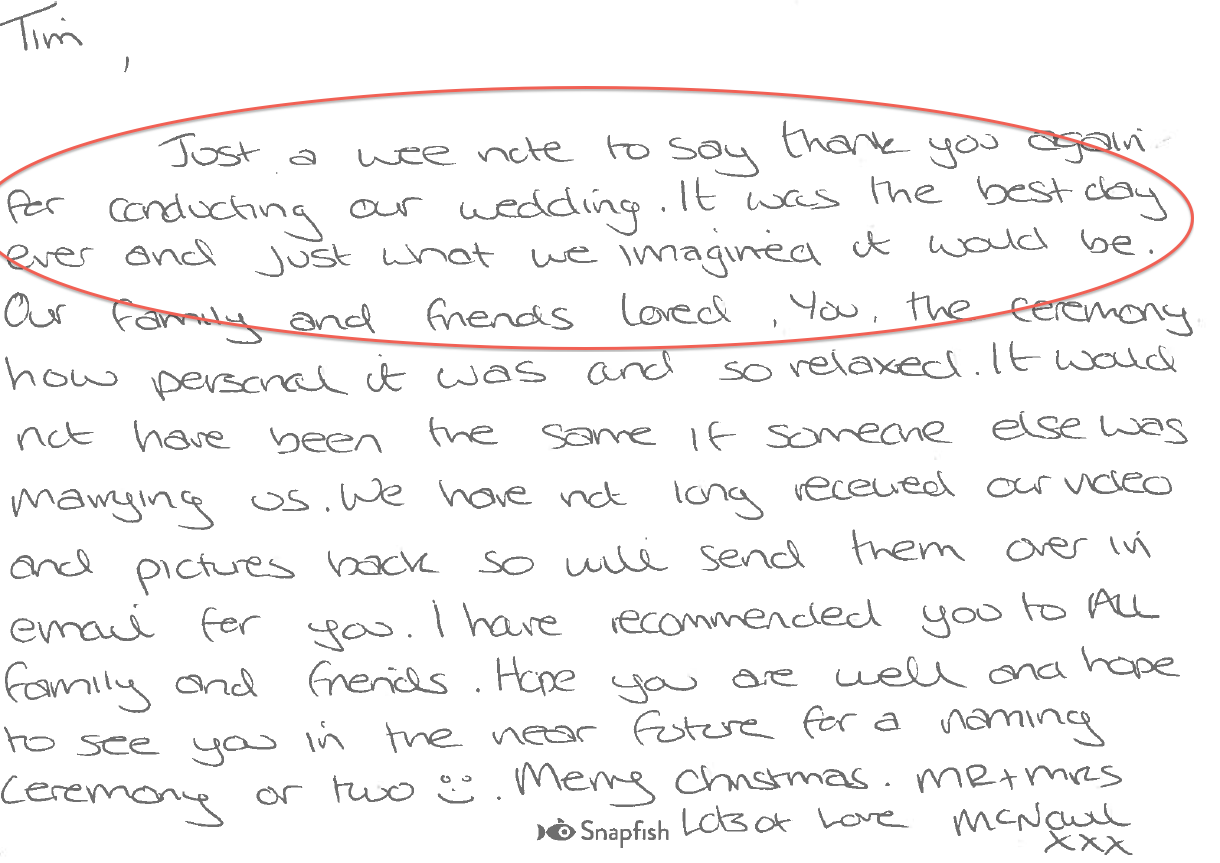 Tim,
Just a wee note to say thank you again
for conducting our wedding. It was the best day
ever and just what we imagined it would be.
Our family and friends loved, You, the ceremony
how personal it was and so relaxed. It would
not have been the same if someone else was
marrying us. We have not long received our video
and pictures back so will send them over in
email for you. I have recommended you to ALL
family and friends. Hope you are well and hope
to see you in the near future for a naming
ceremony or two :). Merry Christmas. MR + MRS
Snapfish Lots of Love McNaul
xxx